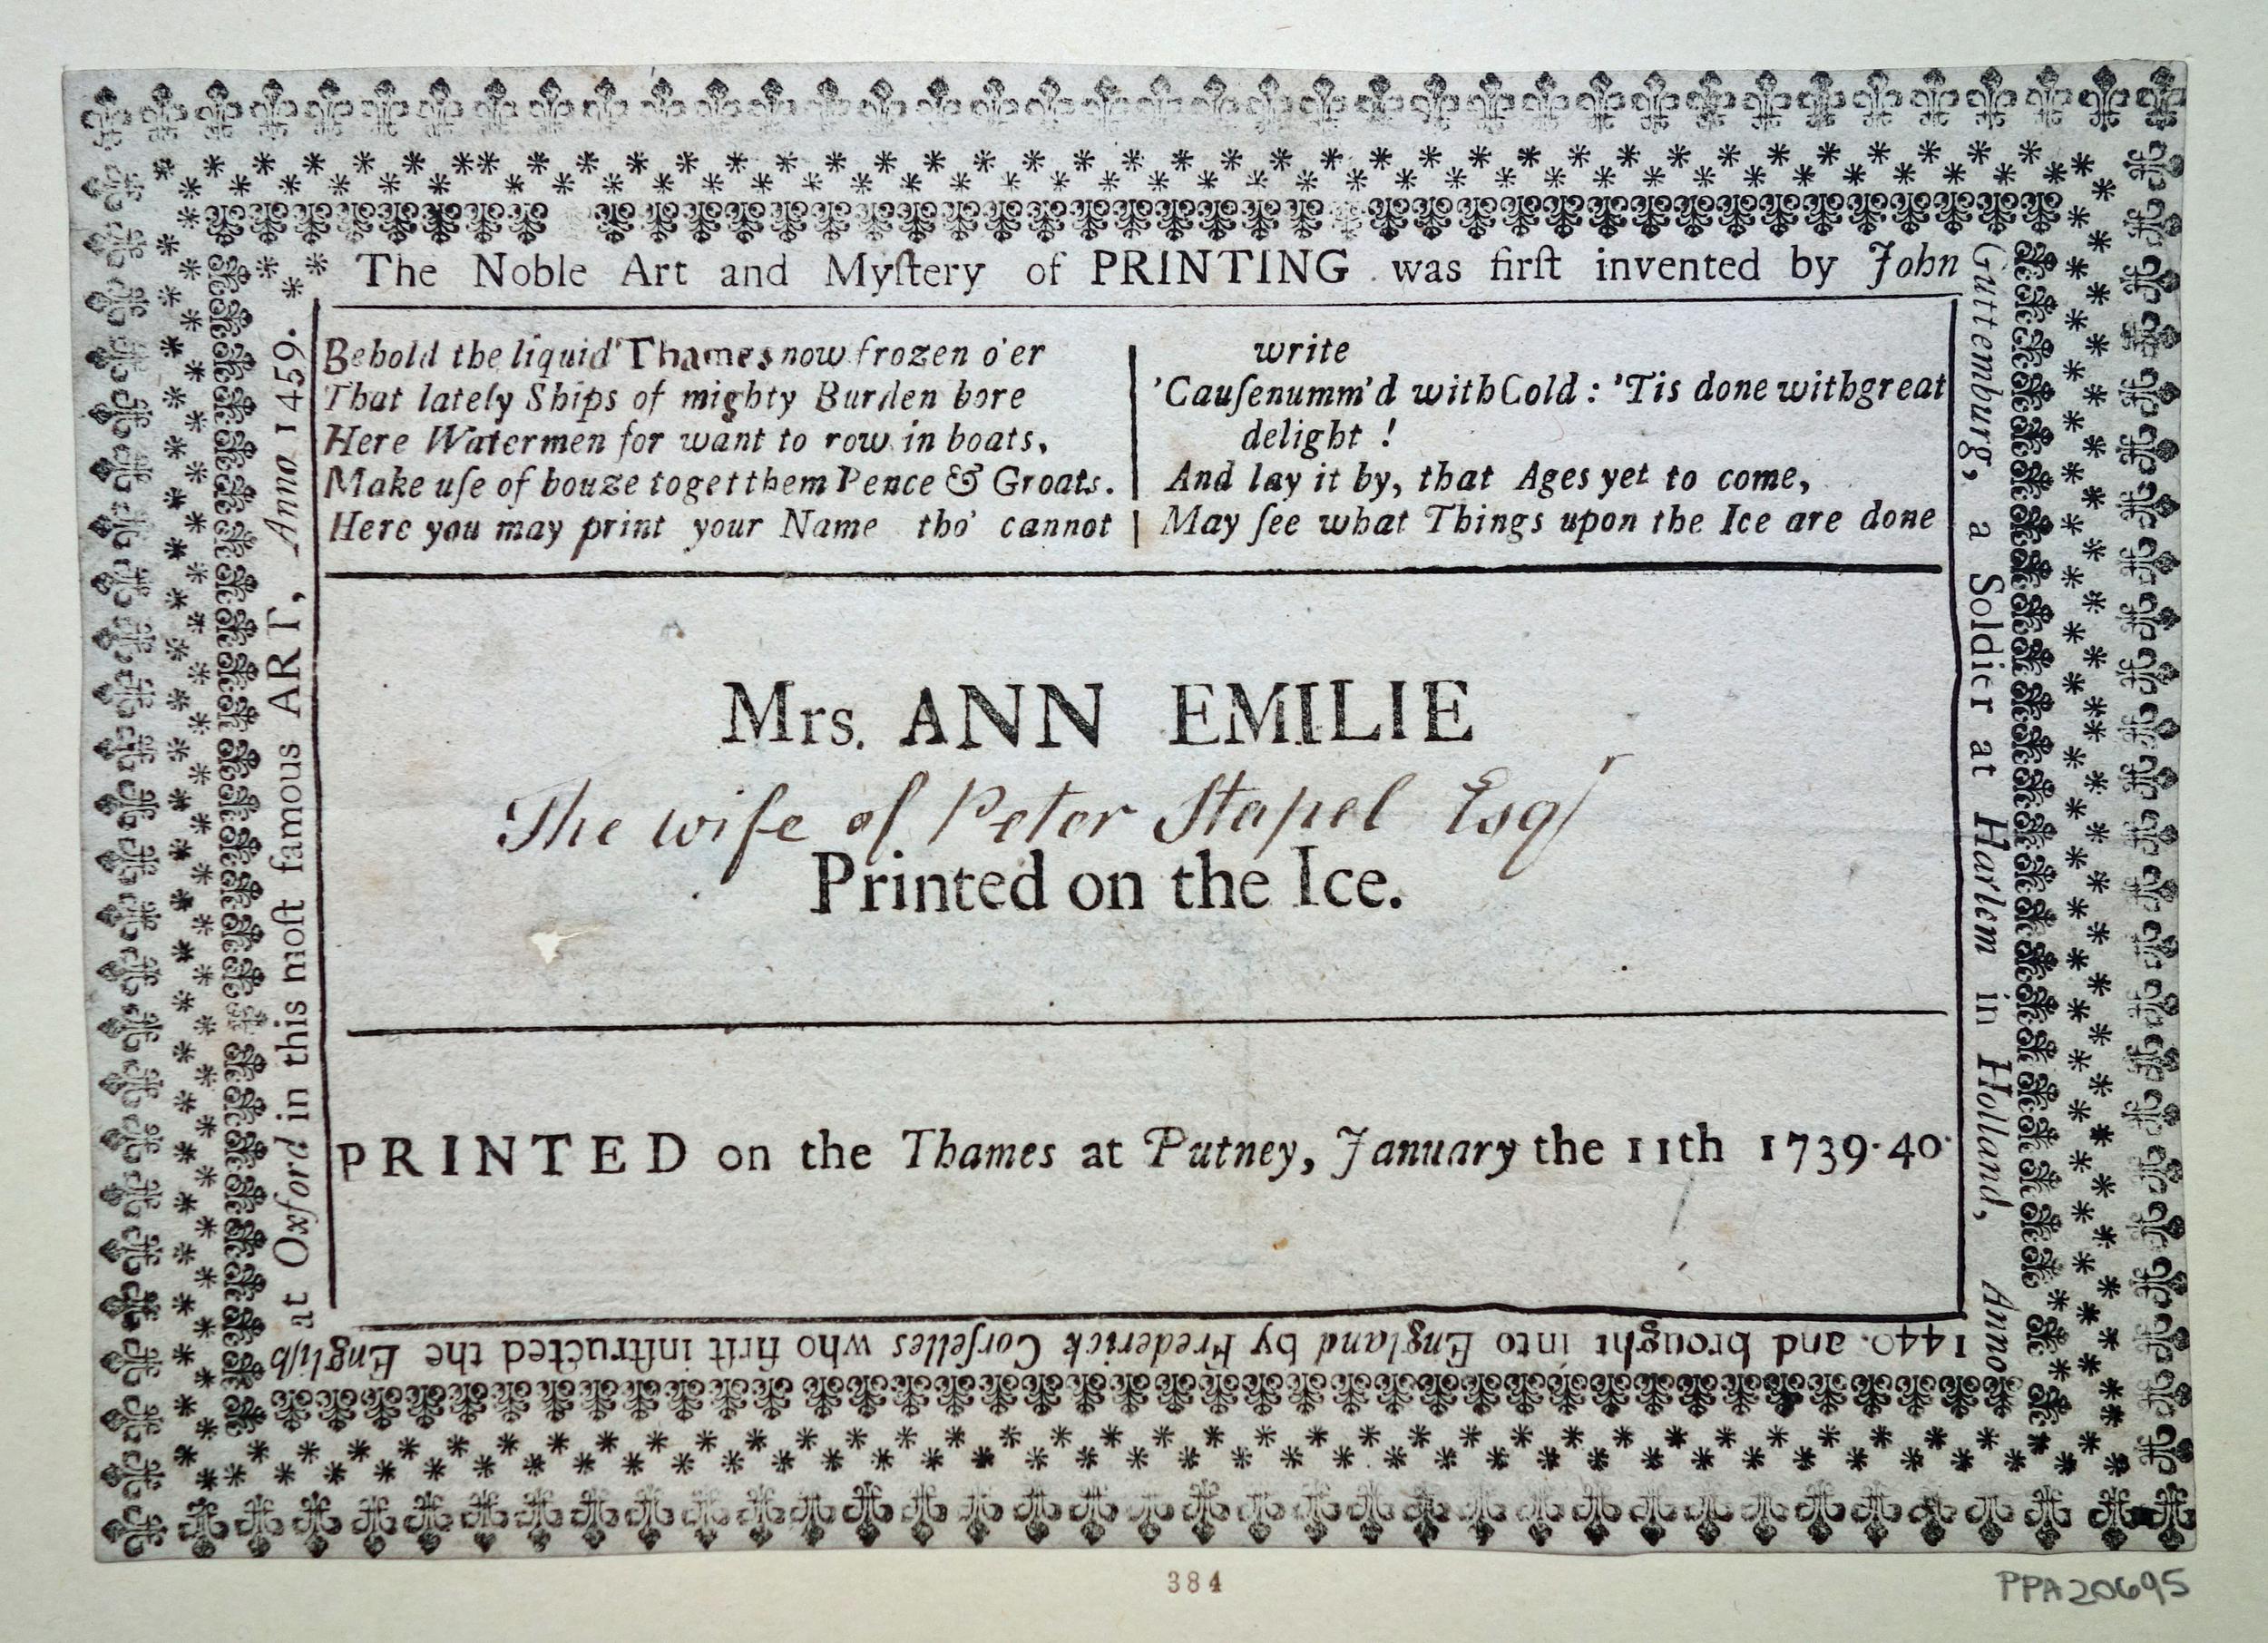 The Noble Art and Myſtery of PRINTING was firſt invented by John
Guttemburg, a Soldier at Harlem in Holland, Anno
1440. and brought into England by Frederick Corſelles who firſt inſtructed the Engliſh
at Oxford in this moſt famous ART, Anno 1459.
Behold the liquid Thames now frozen o'er
That lately Ships of mighty Burden bore
Here Watermen for want to row in boats,
Make uſe of bouze to get them Pence & Groats.
Here you may print your Name tho' cannot
write
'Cauſe numm'd with Cold : 'Tis done with great
delight !
And lay it by, that Ages yet to come,
May ſee what Things upon the Ice are done
Mrs. ANN EMILIE
The wife of Peter Stapel Esqr
Printed on the Ice.
PRINTED on the Thames at Putney, January the 11th 1739-40.
384
PPA20695